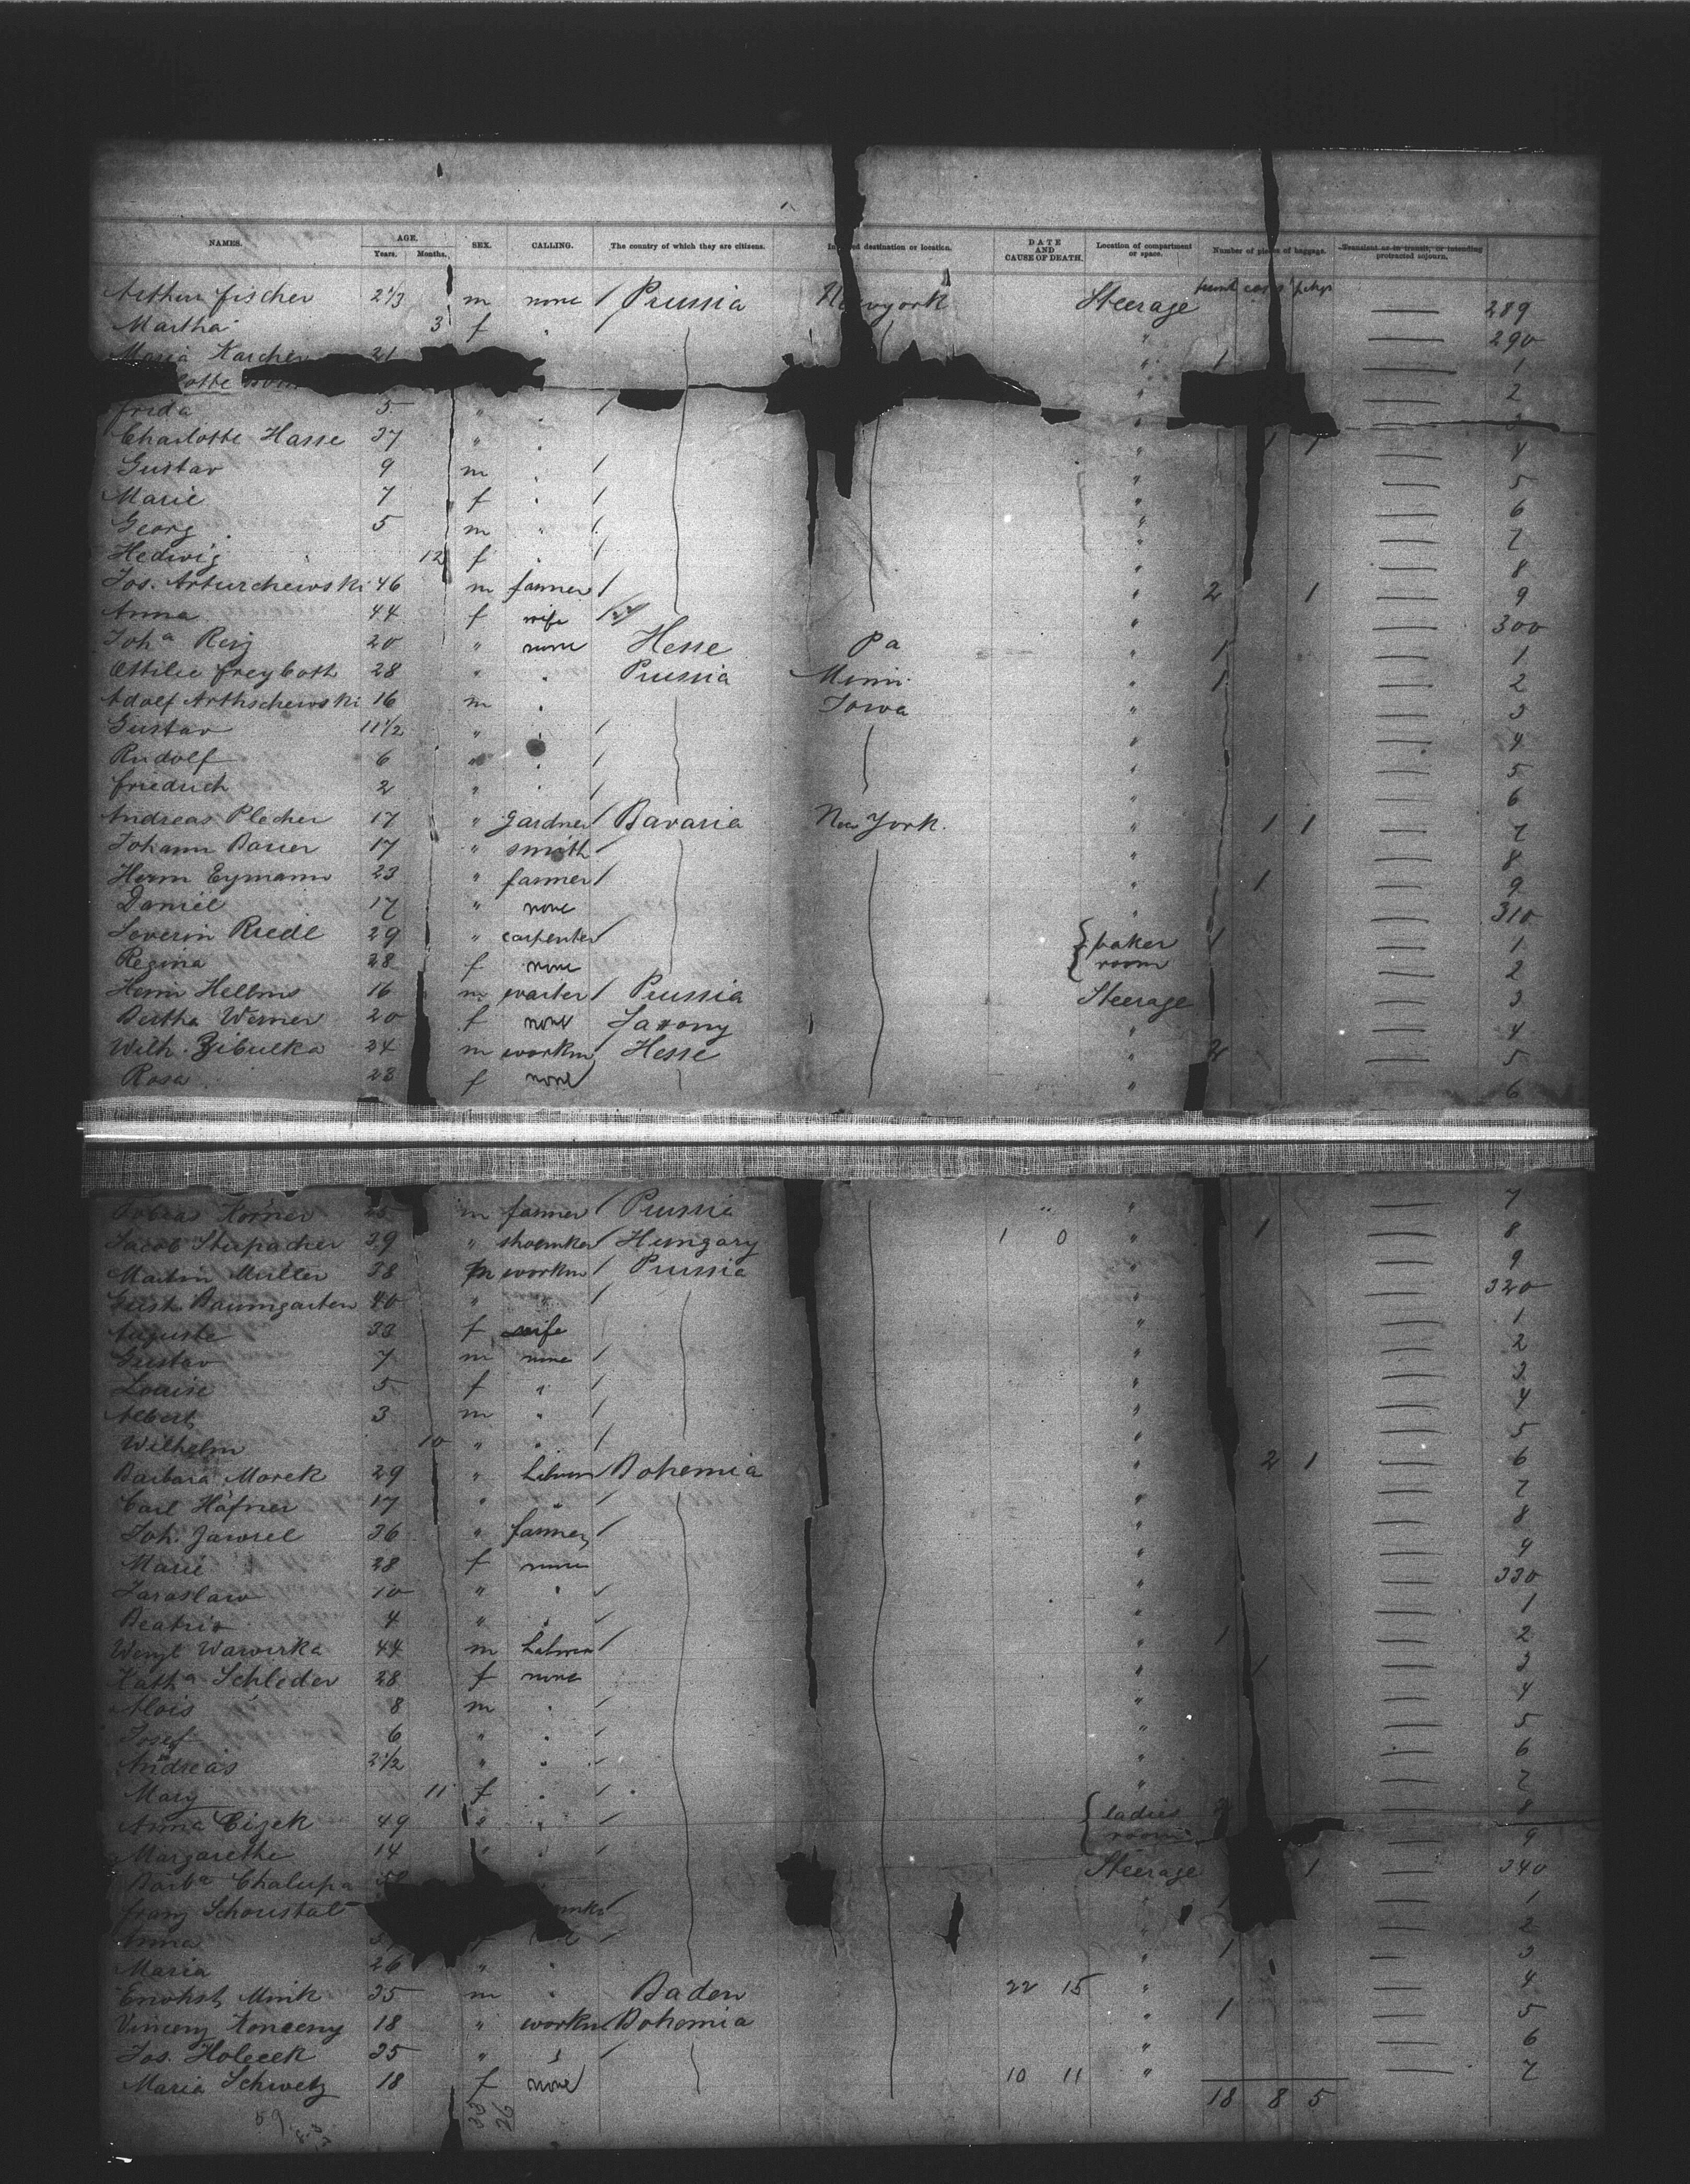 NAMES. AGE. Years. Months. SEX. CALLING. The country of which they are citizens. destination or location. DATE AND CAUSE OF DEATH. Location of compartment or space. Number of pieces of baggage. Transient or in transit, or intending protracted sojourn.
Arthur Fischer 2 1/3 m none / Prussia Newyork Steerage — 289
Martha 3 f " / " — 290
Maria Karcher 21 " 1 — 1
lotte " — 2
Frida 5 " " / " — 3
Charlotte Hasse 37 " " " 1 1 — 4
Gustav 9 m " / " — 5
Marie 7 f " / " — 6
Georg 5 m " / " — 7
Hedwig 12 f " / " — 8
Jos. Arturchewski 46 m farmer / " 2 1 — 9
Anna 44 f wife / " — 300
Joha Reig 20 " none Hesse Pa " 1 — 1
Ottilie Freyboth 28 " " Prussia Minn. " 1 — 2
Adolf Arthschewski 16 m " Iowa " — 3
Gustav 11 1/2 " " / " — 4
Rudolf 6 " " / " — 5
Friedrich 2 " " / " — 6
Andreas Plecher 17 " gardner / Bavaria New York. " 1 1 — 7
Johann Bauer 17 " smith / " — 8
Herm Eymann 23 " farmer / " 1 — 9
Daniel 17 " none " — 310
Severin Riedl 29 " carpenter / { baker 1 — 1
Regina 28 f none { room — 2
Heinr Hellms 16 m waiter / Prussia Steerage — 3
Bertha Werner 20 f none Saxony " — 4
Wilh. Zibulka 34 m workm / Hesse " 2 — 5
Rosa 23 f none " 6
Tobias Körner m farmer / Prussia " " — 7
Jacob Stupacher 39 " shoemker / Hungary 1 0 " 1 — 8
Martin Müller 38 m workm / Prussia — 9
Gust. Baumgarten 40 " " / " — 320
Auguste 33 f wife " — 1
Gustav 7 m none / " — 2
Louise 5 f " / " — 3
Albert 3 m " / " — 4
Wilhelm 10 " " / " — 5
Barbara Morek 29 " labour / Bohemia " 2 1 — 6
Carl Häfner 17 " " / " — 7
Joh. Jawrel 36 " farmer / " — 8
Marie 28 f none " — 9
Jaroslaw 10 " " / " — 330
Beatrix 4 " " / " — 1
Wenzl Wawirka 44 m labour / " 1 — 2
Katha Schleder 28 f none " 1 — 3
Alois 8 m " / " — 4
Josef 6 " " / " — 5
Andreas 2 1/2 " " / " — 6
Mary 11 f " / " — 7
Anna Cizek 49 " " / { ladies — 8
Margarethe 14 " " / { room — 9
Barba Chalupa Steerage 1 — 340
Franz Schoustal / " — 1
Anna / — 2
Maria 26 " " " 1 — 3
Mink 35 m " Baden 22 15 " — 4
18 " workm Bohemia " 1 — 5
Jos. Holecek 35 " " / " — 6
Maria Schwetz 18 f none 10 11 " — 7
18 8 5
59
33
26